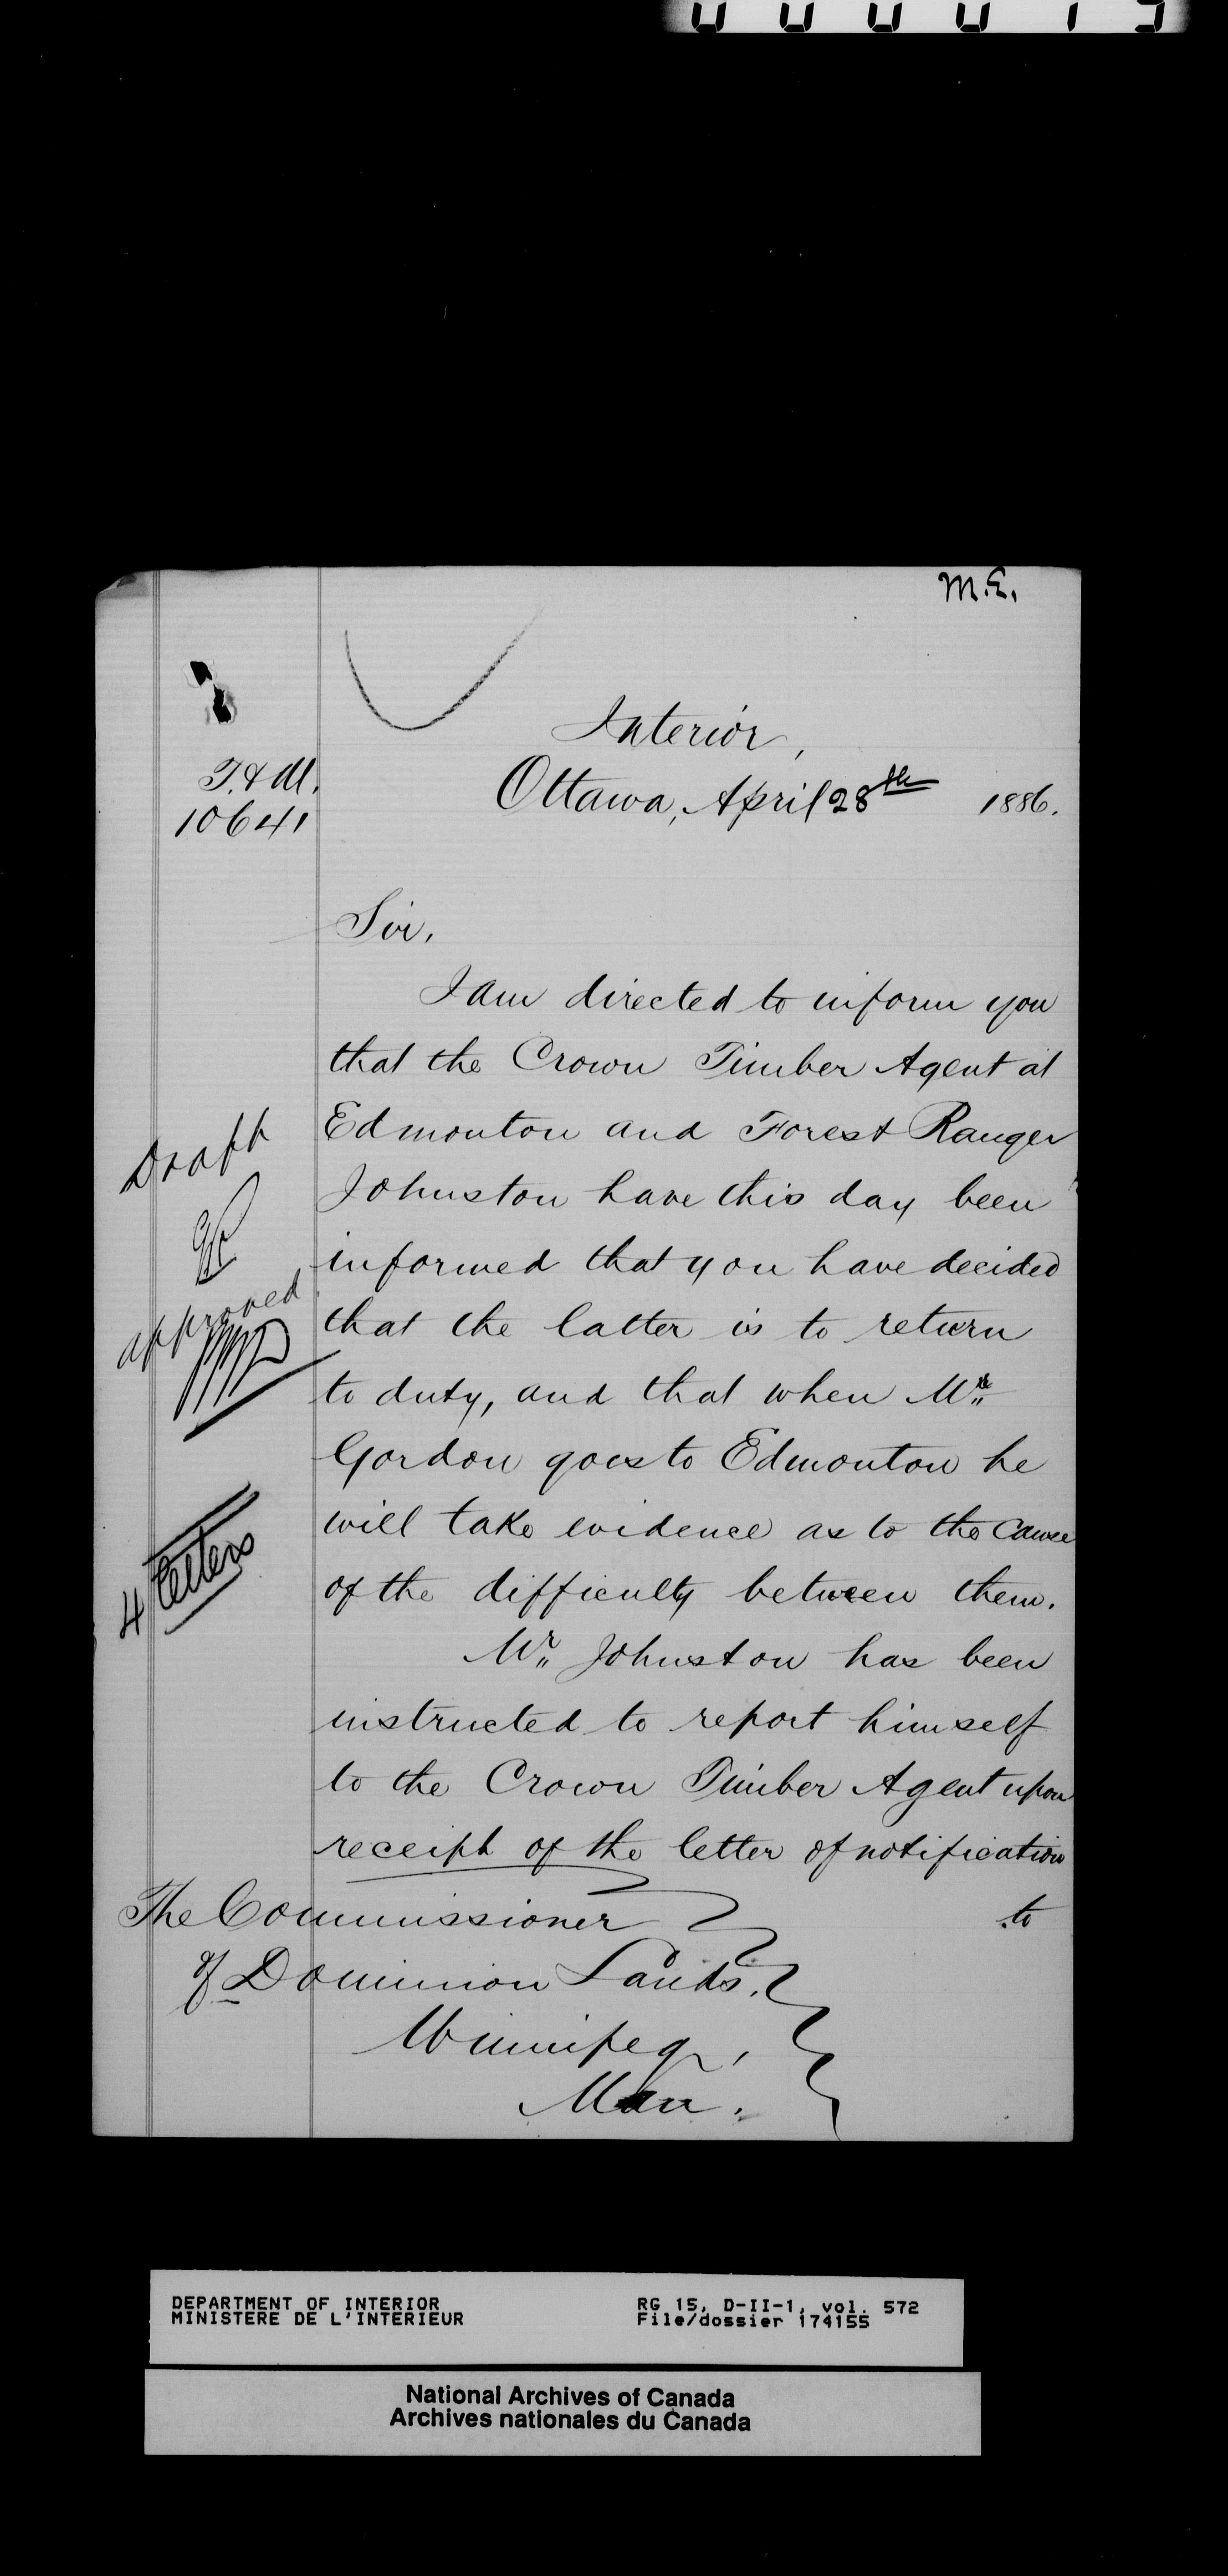 M.E.
Interior,
T. & M.
10641
Ottawa, April 28th 1886.
Sir,
I am directed to inform you
that the Crown Timber Agent at
Edmonton and Forest Ranger
Johnston have this day been
informed that you have decided
that the latter is to return
to duty, and that when Mr.
Gordon goes to Edmonton he
will take evidence as to the cause
of the difficulty between them.
Mr. Johnston has been
instructed to report himself
to the Crown Timber Agent upon
receipt of the letter of notification
to
The Commissioner
of Dominion Lands.
Winnipeg,
Man.
Draft
approved
4 letters
DEPARTMENT OF INTERIOR
MINISTERE DE L'INTERIEUR
RG 15, D-II-1, vol. 572
File/dossier 174155
National Archives of Canada
Archives nationales du Canada